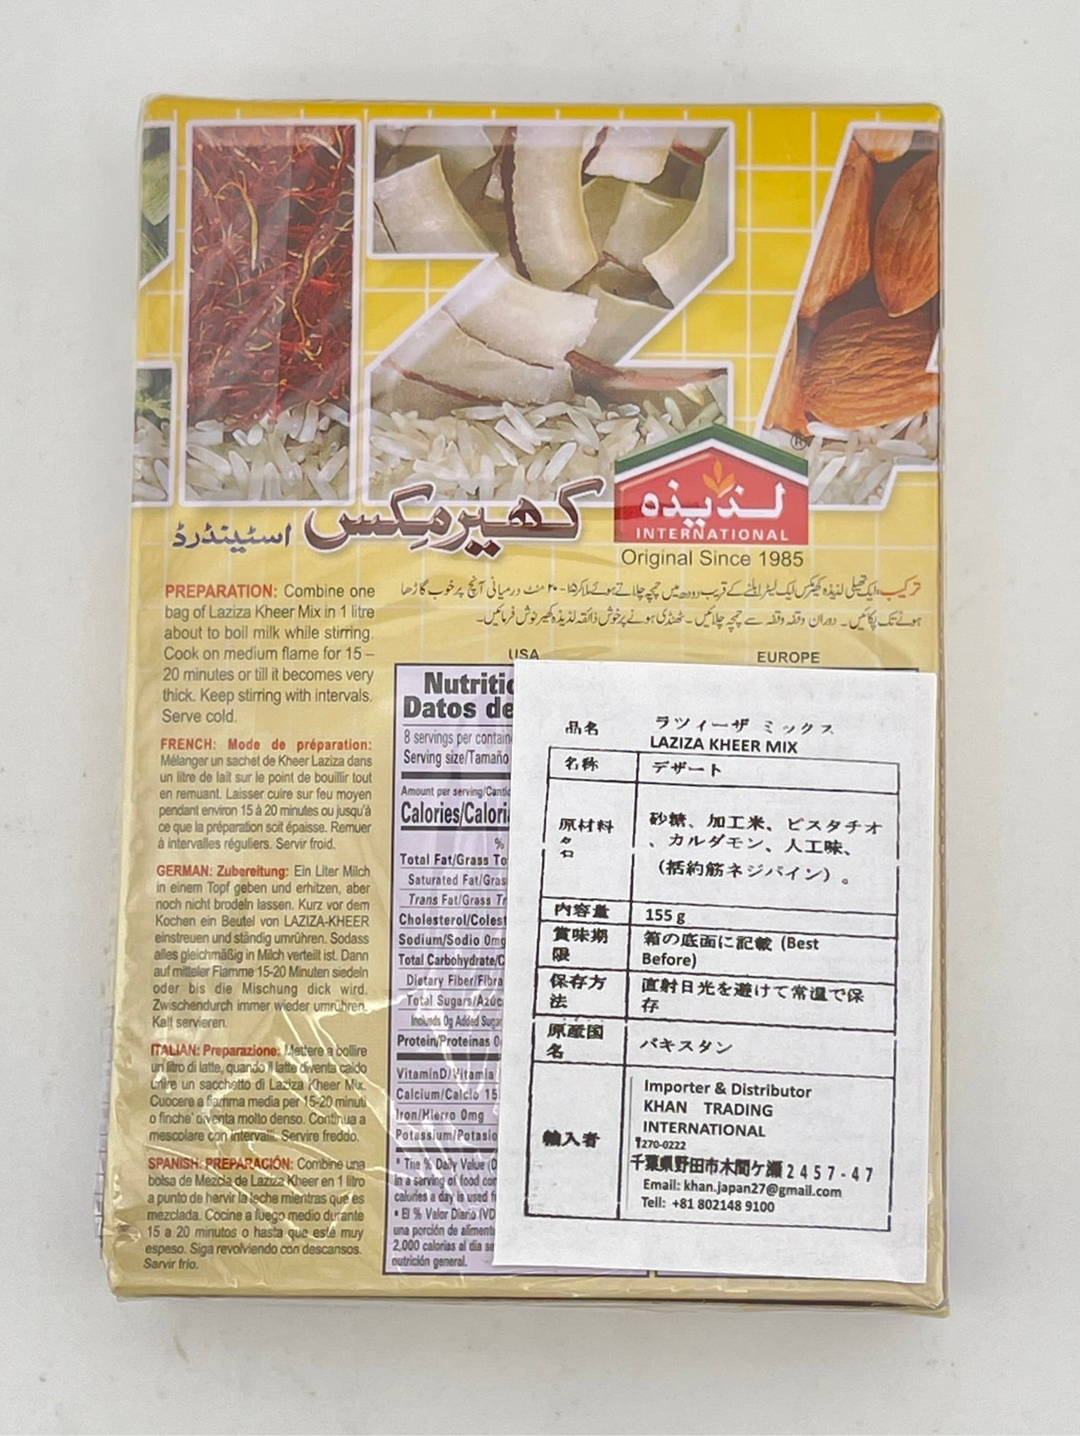 IZA
®
لذیذہ
INTERNATIONAL
Original Since 1985
کھیر مکس اسٹینڈرڈ
ترکیب: ایک تھیلی لذیذہ کھیر مکس ایک لیٹر ابلنے کے قریب دودھ میں چمچہ چلاتے ہوئے ملا کر ۱۵-۲۰ منٹ درمیانی آنچ پر خوب گاڑھا
ہونے تک پکائیں۔ دوران وقفہ وقفہ سے چمچہ چلائیں۔ ٹھنڈی ہونے پر خوش ذائقہ لذیذہ کھیر نوش فرمائیں۔
PREPARATION: Combine one
bag of Laziza Kheer Mix in 1 litre
about to boil milk while stirring.
Cook on medium flame for 15 –
20 minutes or till it becomes very
thick. Keep stirring with intervals.
Serve cold.
FRENCH: Mode de préparation:
Mélanger un sachet de Kheer Laziza dans
un litre de lait sur le point de bouillir tout
en remuant. Laisser cuire sur feu moyen
pendant environ 15 à 20 minutes ou jusqu'à
ce que la préparation soit épaisse. Remuer
à intervalles réguliers. Servir froid.
GERMAN: Zubereitung: Ein Liter Milch
in einem Topf geben und erhitzen, aber
noch nicht brodeln lassen. Kurz vor dem
Kochen ein Beutel von LAZIZA-KHEER
einstreuen und ständig umrühren. Sodass
alles gleichmäßig in Milch verteilt ist. Dann
auf mittler Flamme 15-20 Minuten siedeln
oder bis die Mischung dick wird.
Zwischendurch immer wieder umrühren.
Kalt servieren.
ITALIAN: Preparazione: Mettere a bollire
un litro di latte, quando il latte diventa caldo
unire un sacchetto di Laziza Kheer Mix.
Cuocere a fiamma media per 15-20 minuti
o finche' diventa molto denso. Continua a
mescolare con intervalli. Servire freddo.
SPANISH: PREPARACIÓN: Combine una
bolsa de Mezcla de Laziza Kheer en 1 litro
a punto de hervir la leche mientras que es
mezclada. Cocine a fuego medio durante
15 a 20 minutos o hasta que esté muy
espeso. Siga revolviendo con descansos.
Servir frio.
USA
EUROPE
Nutritio
Datos de
8 servings per contain
Serving size/Tamaño
Amount per serving/Cantid
Calories/Calorí
%
Total Fat/Grass To
Saturated Fat/Gras
Trans Fat/Grass Tr
Cholesterol/Colest
Sodium/Sodio 0mg
Total Carbohydrate/C
Dietary Fiber/Fibra
Total Sugars/Azúc
Includs 0g Added Sugar
Protein/Proteinas 0
VitaminD/Vitamia
Calcium/Calcio 15
Iron/Hierro 0mg
Potassium/Potasio
* The % Daily Value (D
in a serving of food con
calories a day is used f
* El % Valor Diario (VD
una porción de aliment
2,000 calorias al dia se
nutrición general.
品名 ラツィーザ ミックス
LAZIZA KHEER MIX
名称 デザート
原材料名 砂糖、加工米、ピスタチオ
、カルダモン、人工味、
(括約筋ネジパイン)。
内容量 155 g
賞味期限 箱の底面に記載 (Best
Before)
保存方法 直射日光を避けて常温で保
存
原産国名 パキスタン
輸入者
Importer & Distributor
KHAN TRADING
INTERNATIONAL
〒270-0222
千葉県野田市木間ケ瀬2457-47
Email: khan.japan27@gmail.com
Tell: +81 802148 9100